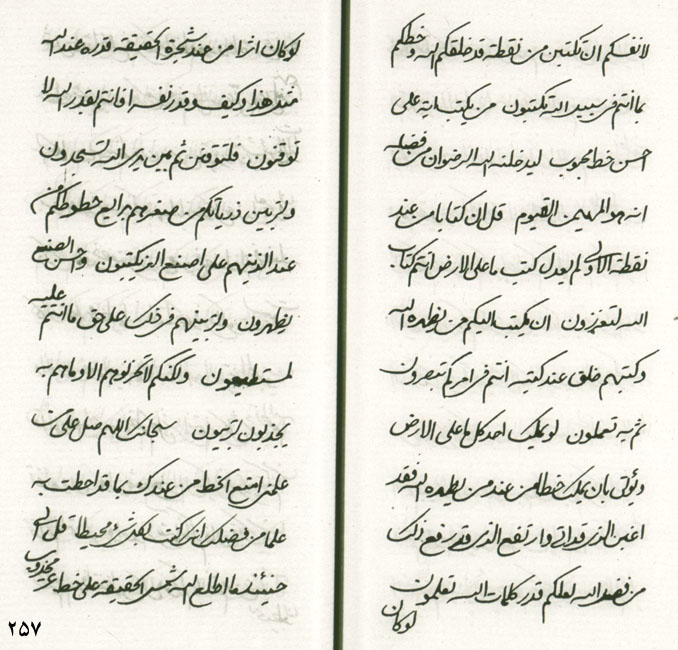 لانفسكم ان تكتبن من نقطة قد خلقكم الله وخطكم
بما انتم في سبيل الله تكتبون من يكتب اية على
احسن خط محبوب ليدخلنه الله الرضوان من فضله
انه هو المهيمن القيوم قل ان كتابا من عند
نقطة الاولى لم يعدل كتب ما على الارض انتم كتاب
الله لتعززون ان يكتب اليكم من يظهره الله
وكتبهم خلق عند كتبه انتم في امركم تبصرون
ثم به تعملون لو يملك احد كل ما على الارض
ويؤتى بان يملك خطا من عند من يظهره الله فقد
اغبن الذي قد اتى وارتفع الذي قد رفع ذلك
من فضل الله لعلكم قدر كلمات الله تعلمون
لوكان
لوكان اثرا من عند شجرة الحقيقة قدره عند الله
مثل هذا وكيف وقدر نفسه افانتم لقدر الله لا
توقنون فلتوقنن ثم بين يدي الله تسجدون
ولتربين ذرياتكم من صغرهم بابدع خطوطكم من
عند الذينهم على اصنع الخط يكتبون وحسن الصنع
يظهرون ولتربينهم في ذلك على حق ما انتم عليه
لمستطيعون ولكنكم لا تحزنوهم الا وما هم به
يجذبون لتربيون سبحانك اللهم صل على من
علمني امتع الخط من عندك بما قد احطت به
علما من فضلك انك كنت لكل شيء محيطا قل ان
حينئذ ما اطلع الله شمس الحقيقة على خط عز محبوب
٢٥٧